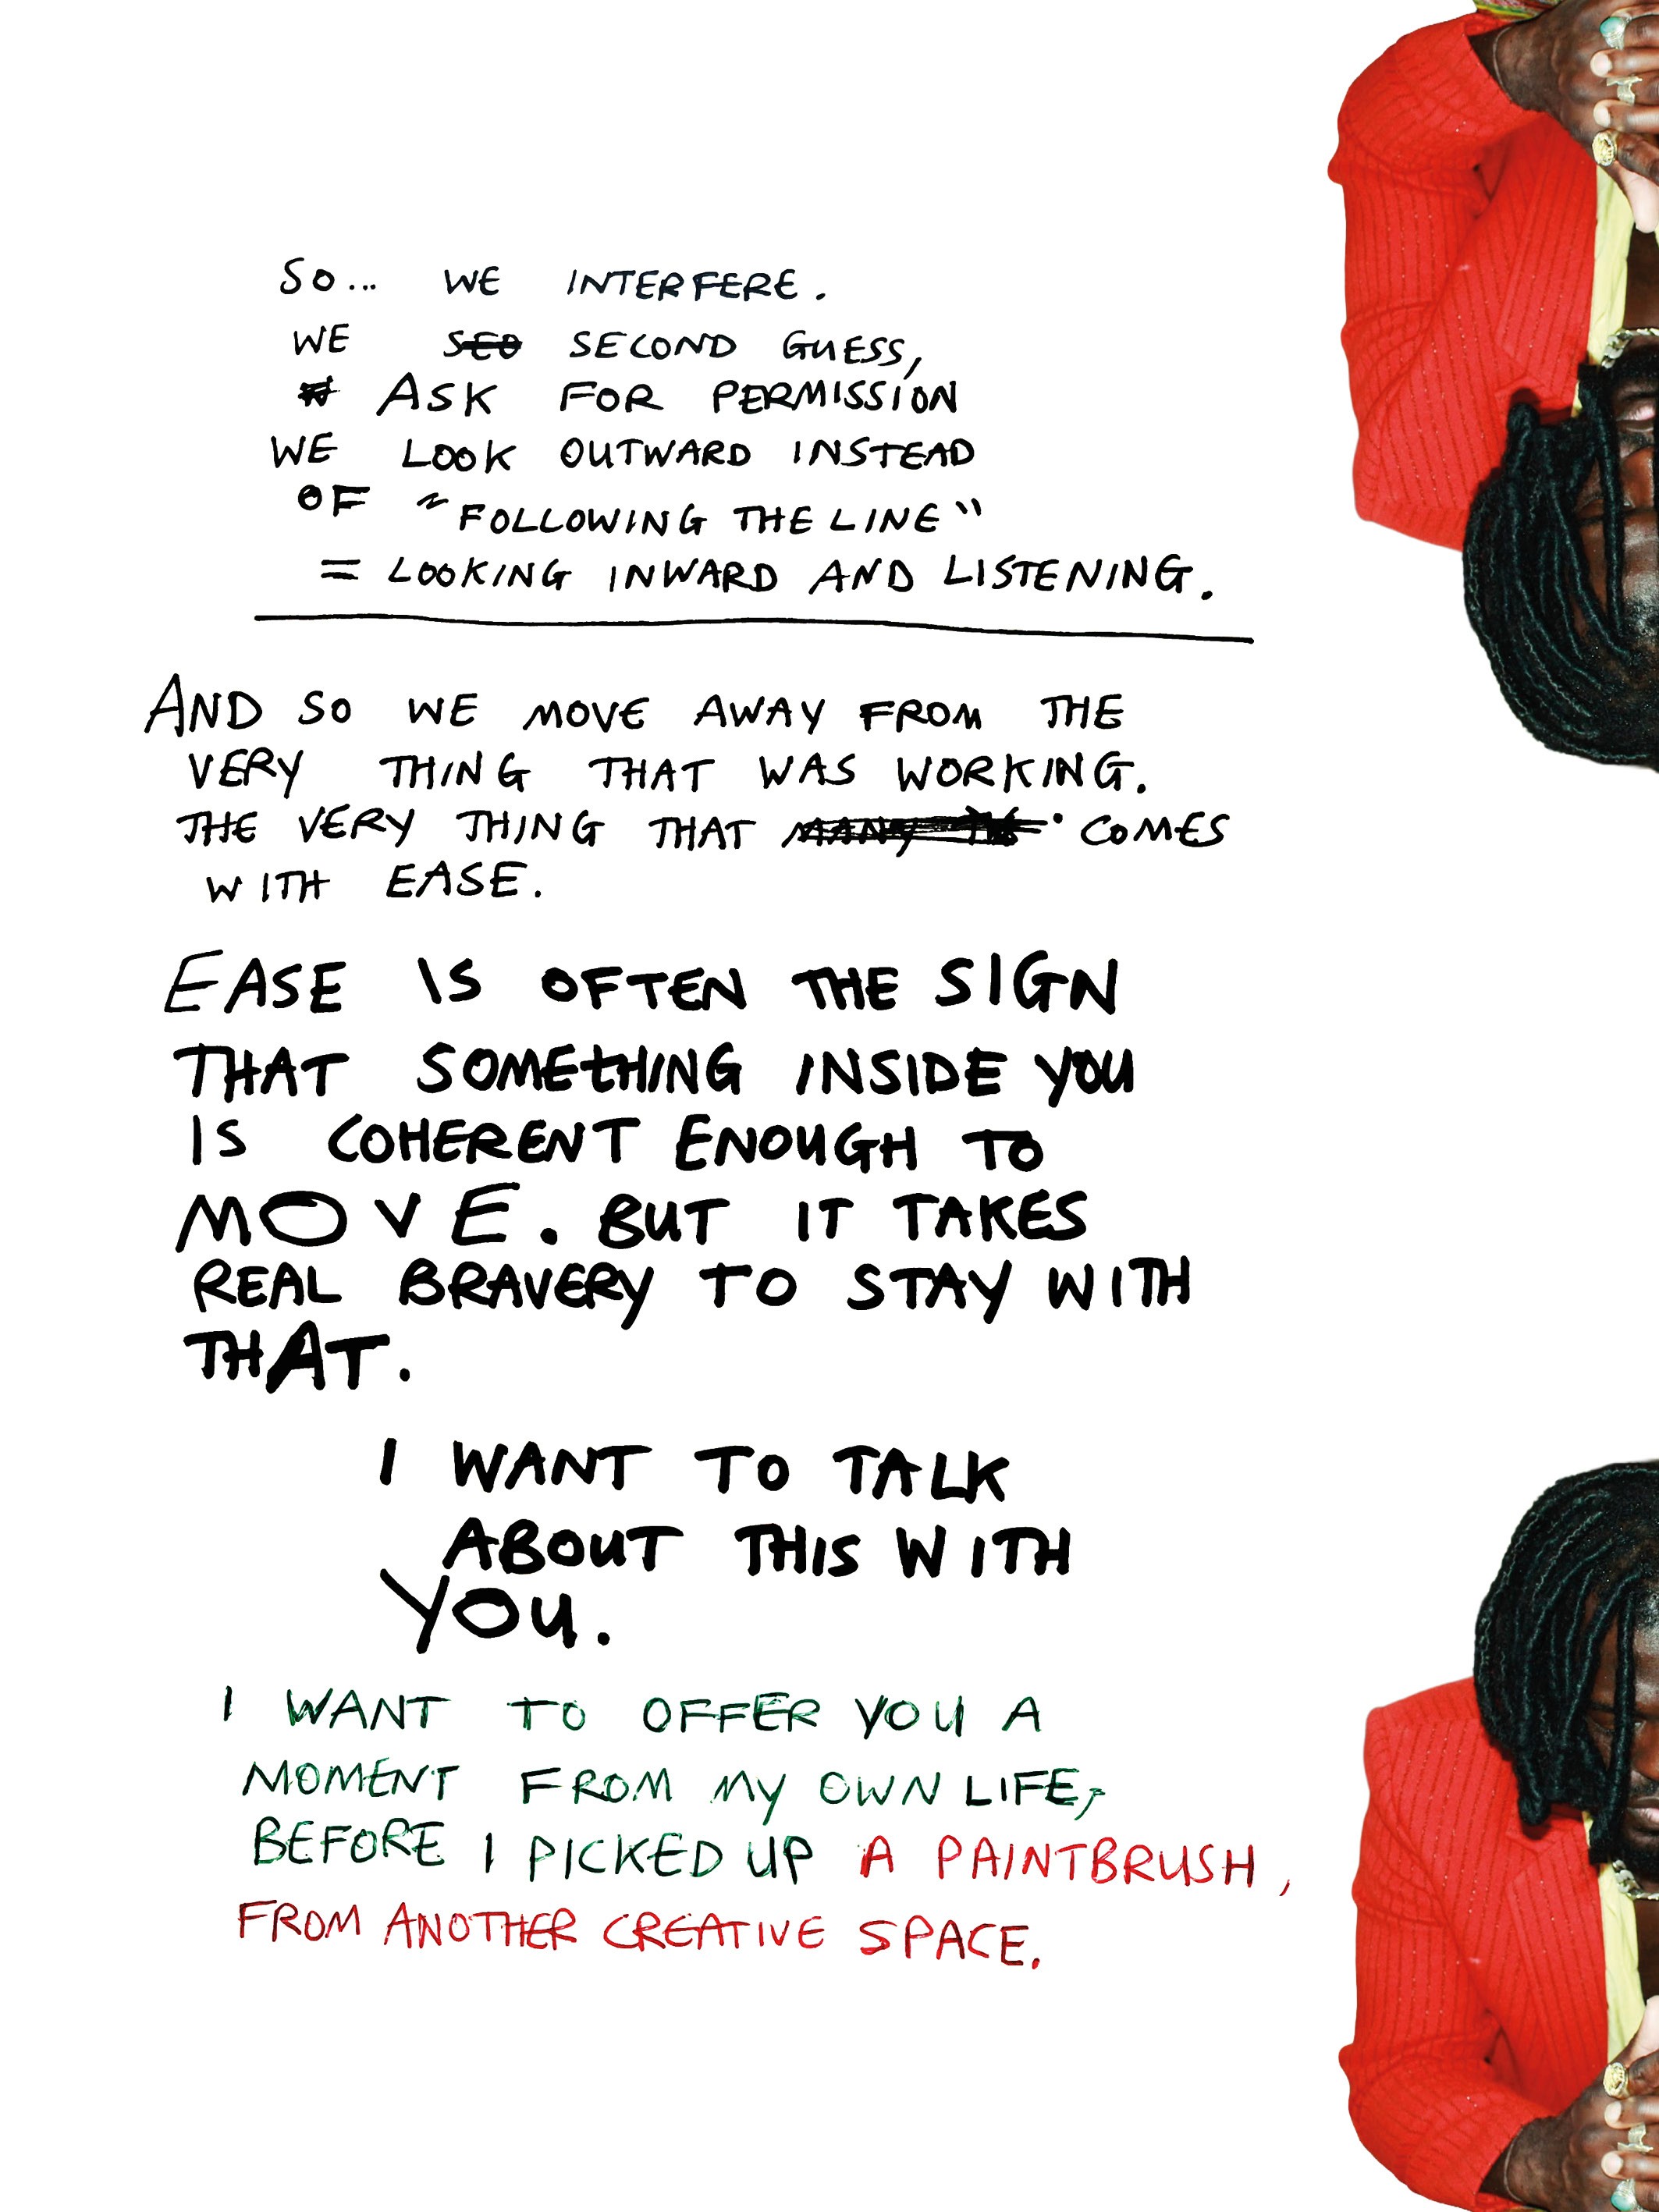 SO... WE INTERFERE.
WE SEO SECOND GUESS,
ASK FOR PERMISSION
WE LOOK OUTWARD INSTEAD
OF "FOLLOWING THE LINE"
= LOOKING INWARD AND LISTENING.
AND SO WE MOVE AWAY FROM THE
VERY THING THAT WAS WORKING.
THE VERY THING THAT COMES
WITH EASE.
EASE IS OFTEN THE SIGN
THAT SOMETHING INSIDE YOU
IS COHERENT ENOUGH TO
MOVE. BUT IT TAKES
REAL BRAVERY TO STAY WITH
THAT.
I WANT TO TALK
ABOUT THIS WITH
YOU.
I WANT TO OFFER YOU A
MOMENT FROM MY OWN LIFE,
BEFORE I PICKED UP A PAINTBRUSH,
FROM ANOTHER CREATIVE SPACE.